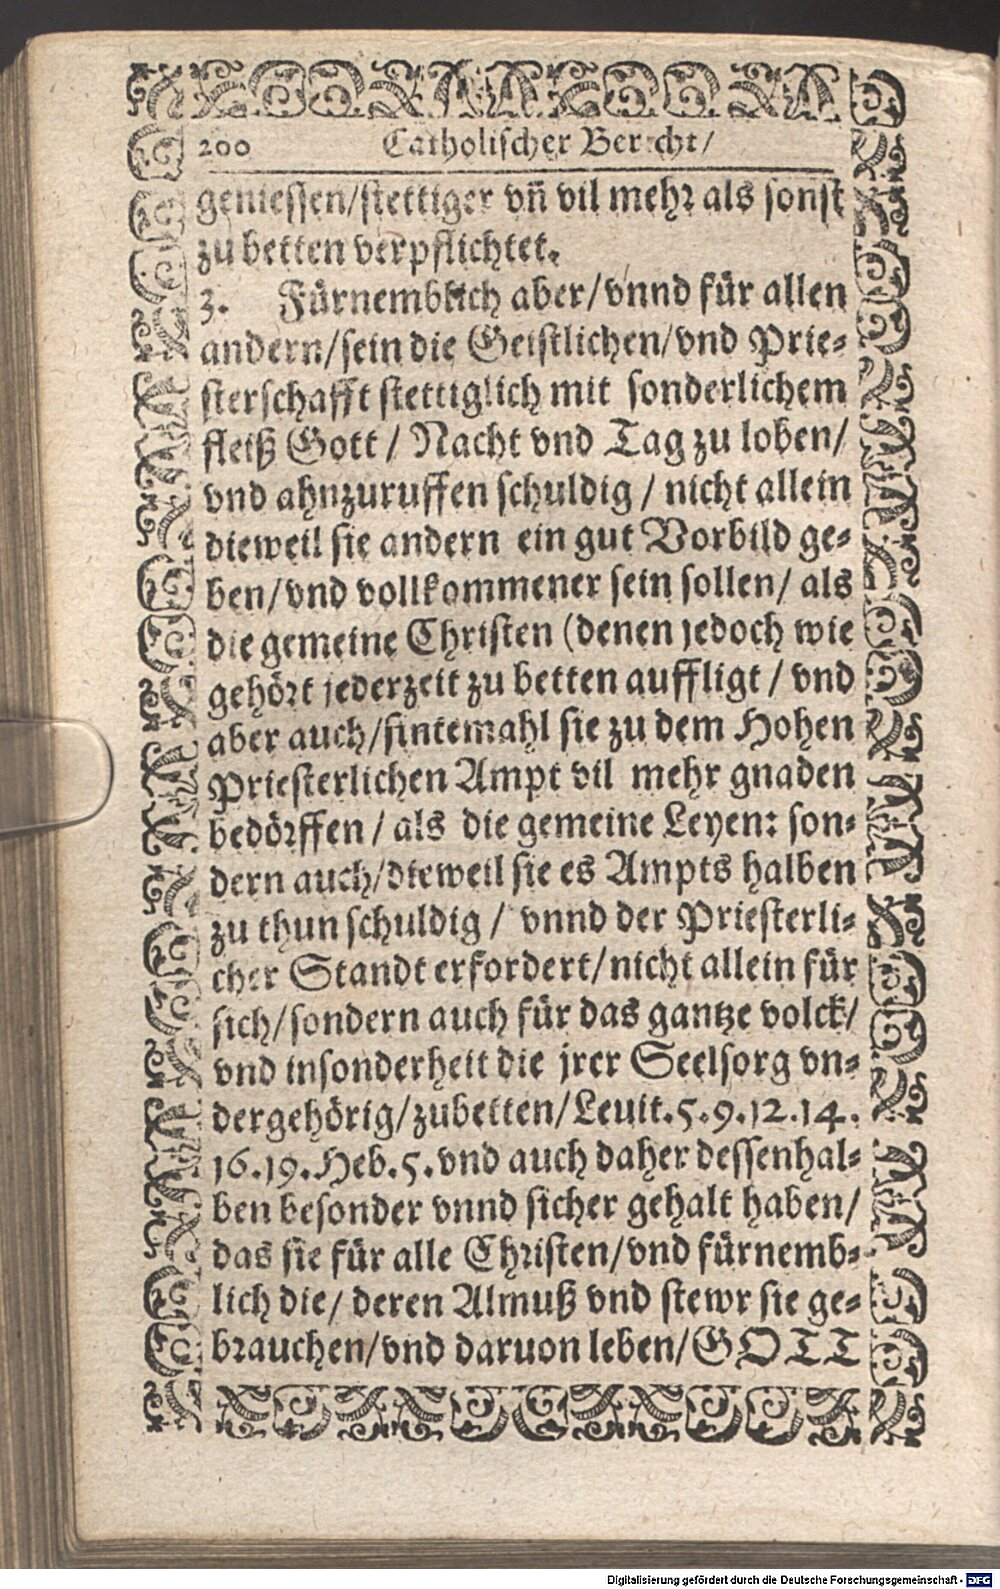 200 Catholischer Bericht/
geniessen/stettiger vñ vil mehr als sonst
zu betten verpflichtet.
3. Fürnemblich aber/vnnd für allen
andern/sein die Geistlichen/vnd Prie-
sterschafft stettiglich mit sonderlichem
fleiß Gott/ Nacht vnd Tag zu loben/
vnd ahnzuruffen schuldig / nicht allein
dieweil sie andern ein gut Vorbild ge-
ben/vnd vollkommener sein sollen/ als
die gemeine Christen (denen jedoch wie
gehört jederzeit zu betten auffligt / vnd
aber auch/sintemahl sie zu dem Hohen
Priesterlichen Ampt vil mehr gnaden
bedörffen / als die gemeine Leyen: son-
dern auch/dieweil sie es Ampts halben
zu thun schuldig / vnnd der Priesterli-
cher Standt erfordert/nicht allein für
sich/sondern auch für das gantze volck/
vnd insonderheit die jrer Seelsorg vn-
dergehörig/zubetten/Leuit.5.9.12.14.
16.19.Heb.5.vnd auch daher dessenhal-
ben besonder vnnd sicher gehalt haben/
das sie für alle Christen/vnd fürnemb-
lich die/ deren Almuß vnd stewr sie ge-
brauchen/vnd daruon leben/GOTT
Digitalisierung gefördert durch die Deutsche Forschungsgemeinschaft - DFG